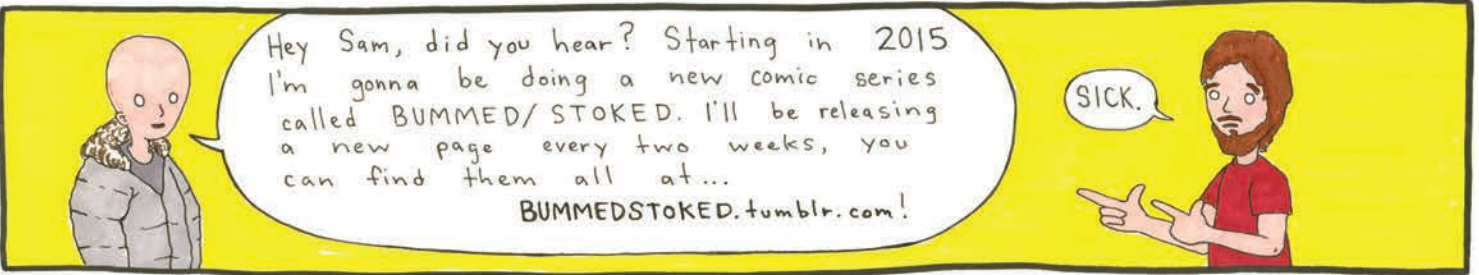 Hey Sam, did you hear? Starting in 2015
I'm gonna be doing a new comic series
called BUMMED/STOKED. I'll be releasing
a new page every two weeks, you
can find them all at...
BUMMEDSTOKED.tumblr.com!
SICK.